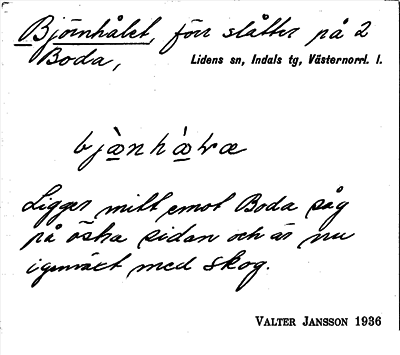 Björnhålet, förr slåtter på 2
Boda,
Lidens sn, Indals tg, Västernorrl. l.
bjæ̀nhæ̀ɽæ
Ligger mitt emot Boda såg
på östra sidan och är nu
igenväxt med skog.
VALTER JANSSON 1936